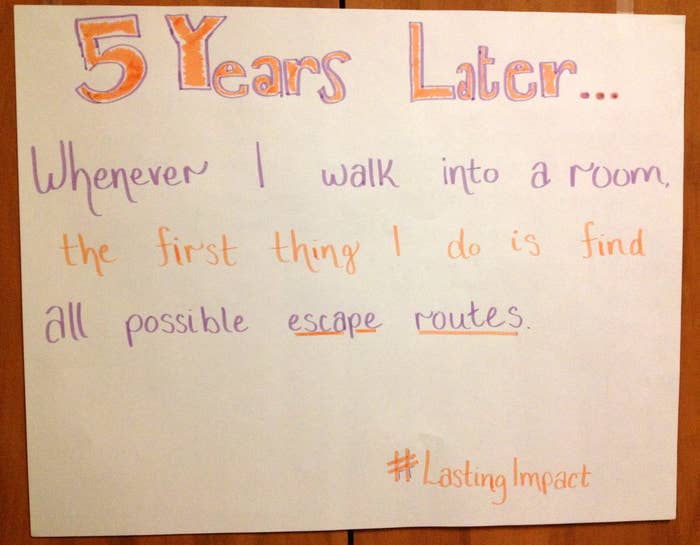 5 Years Later...
Whenever I walk into a room,
the first thing I do is find
all possible escape routes.
#LastingImpact